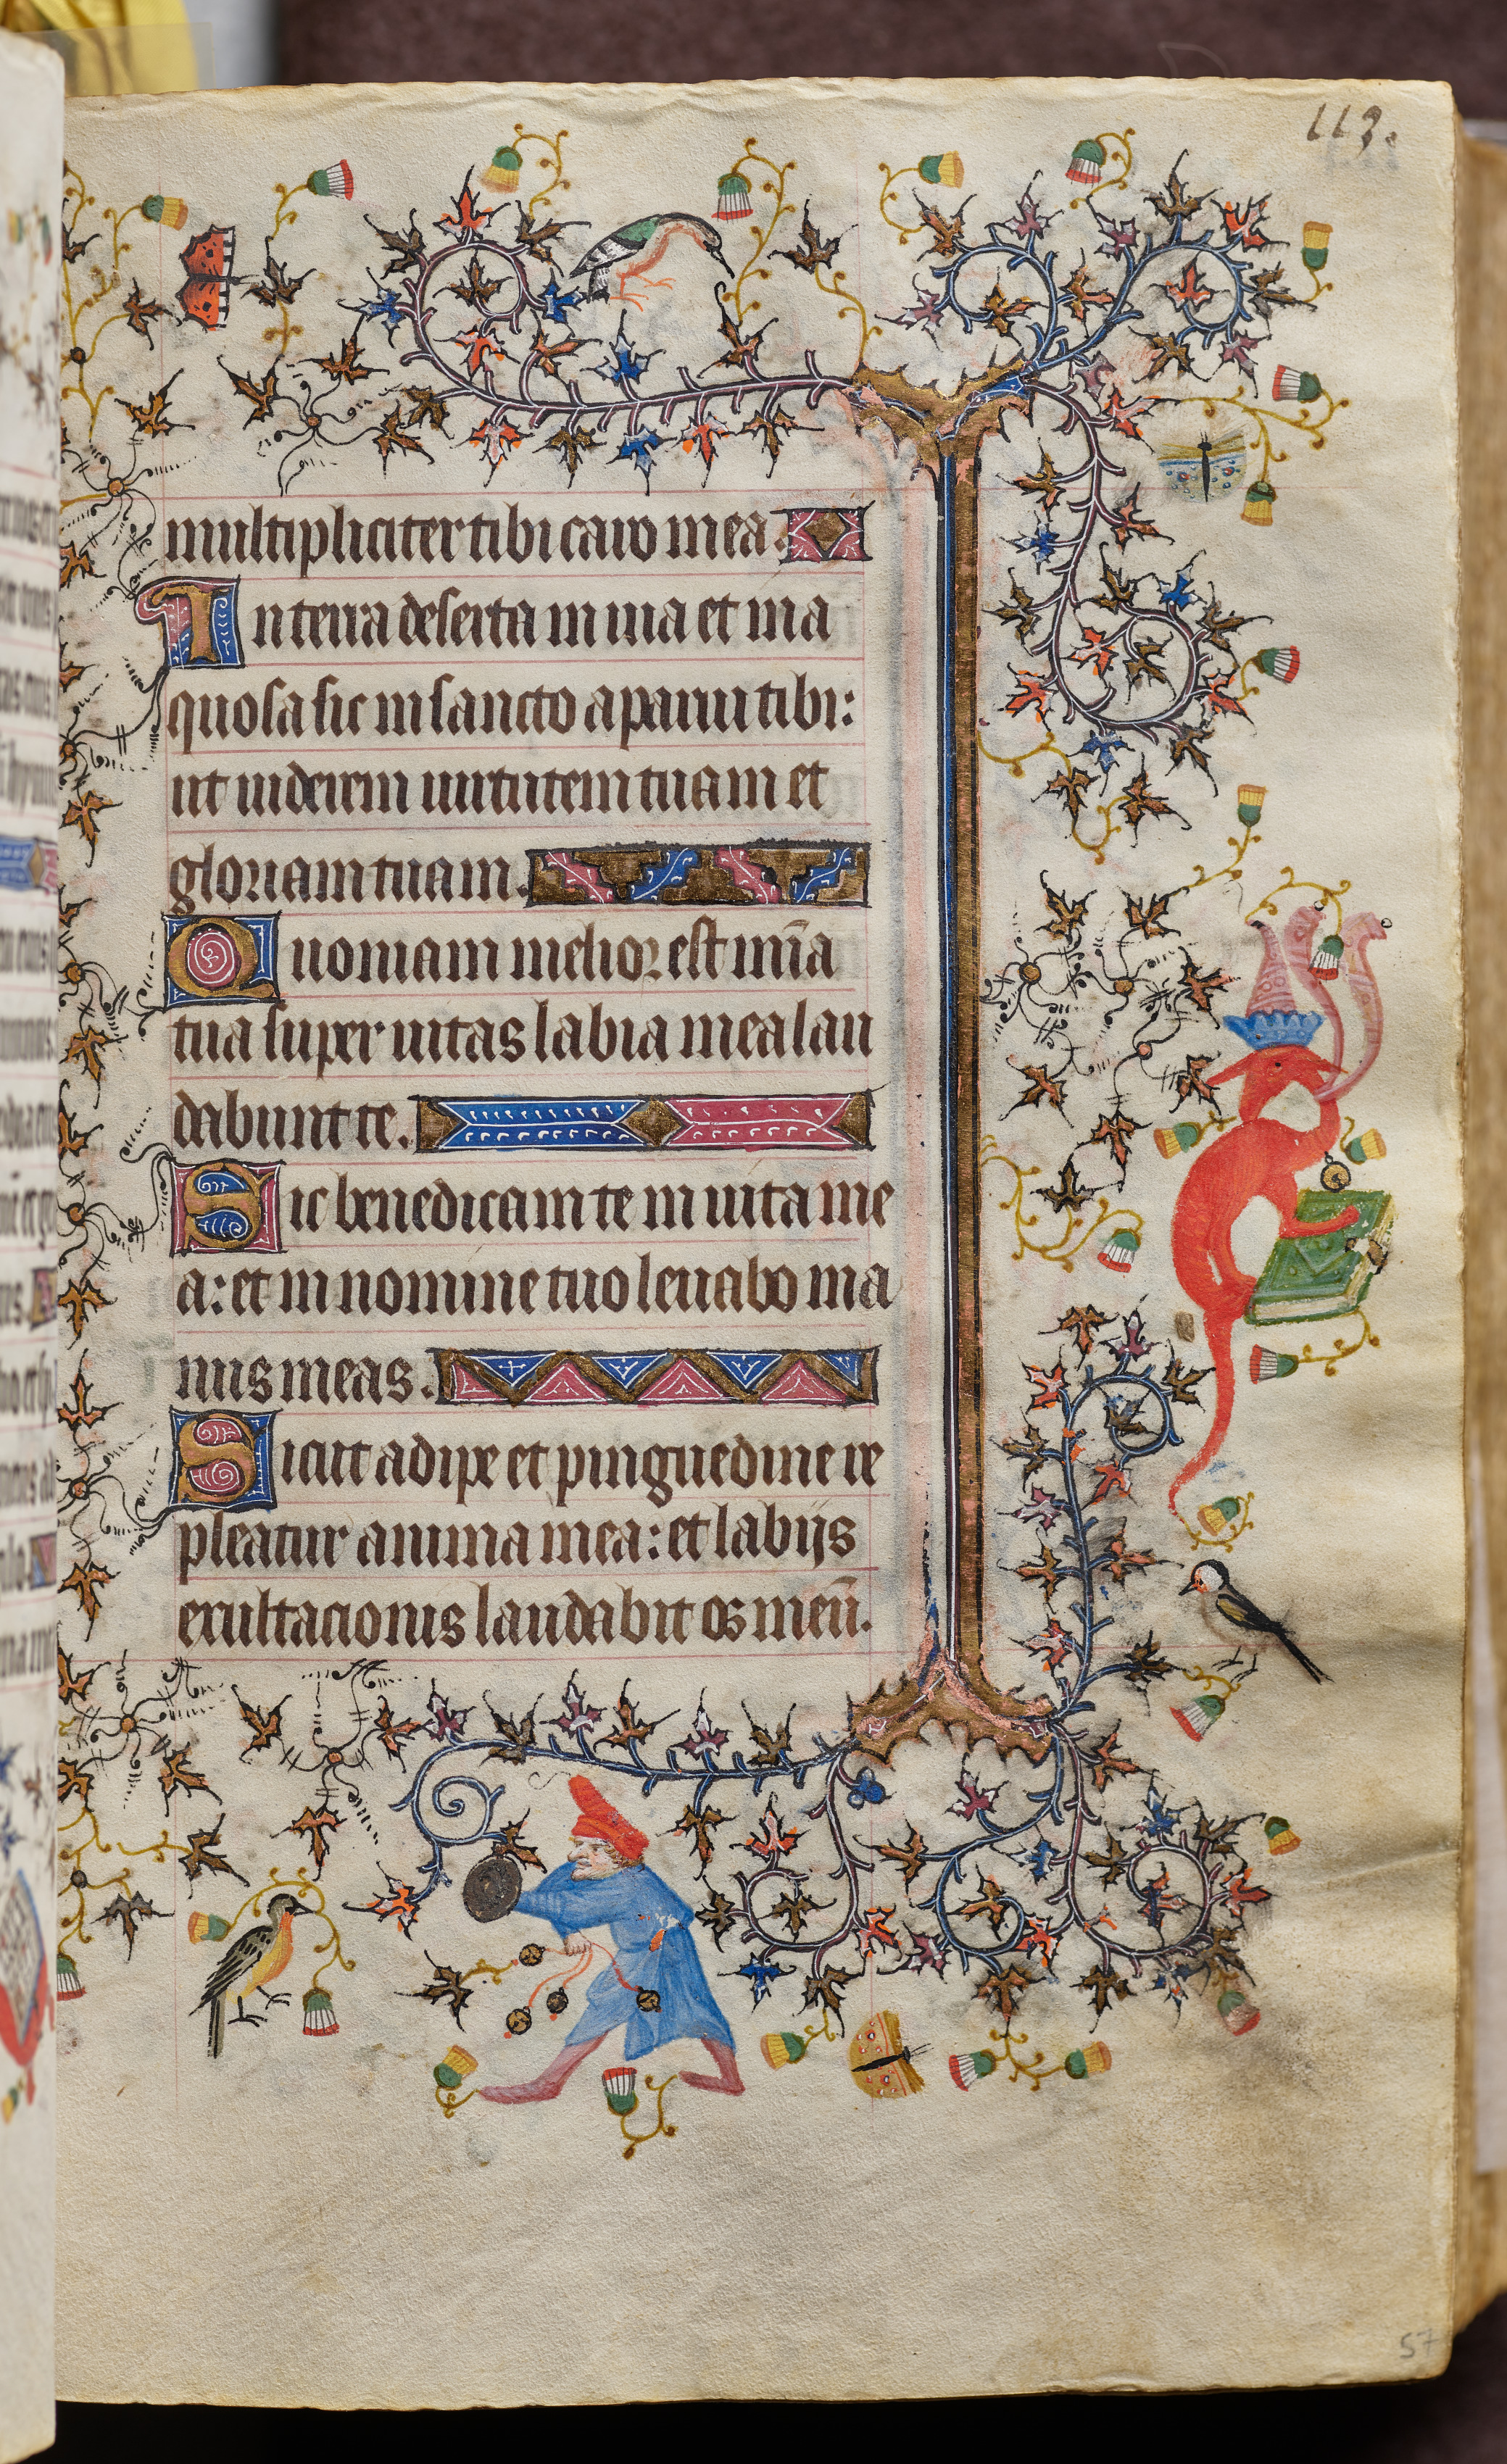 113.
multipliciter tibi caro mea.
In terra deserta inuia et ina
quosa sic in sancto aparui tibi:
ut uiderem uirtutem tuam et
gloriam tuam.
Quoniam melior est mīa
tua super uitas labia mea lau
dabunt te.
Sic benedicam te in uita me
a: et in nomine tuo leuabo ma
nus meas.
Sicut adipe et pinguedine re
pleatur anima mea: et labijs
exultacionis laudabit os meū.
57